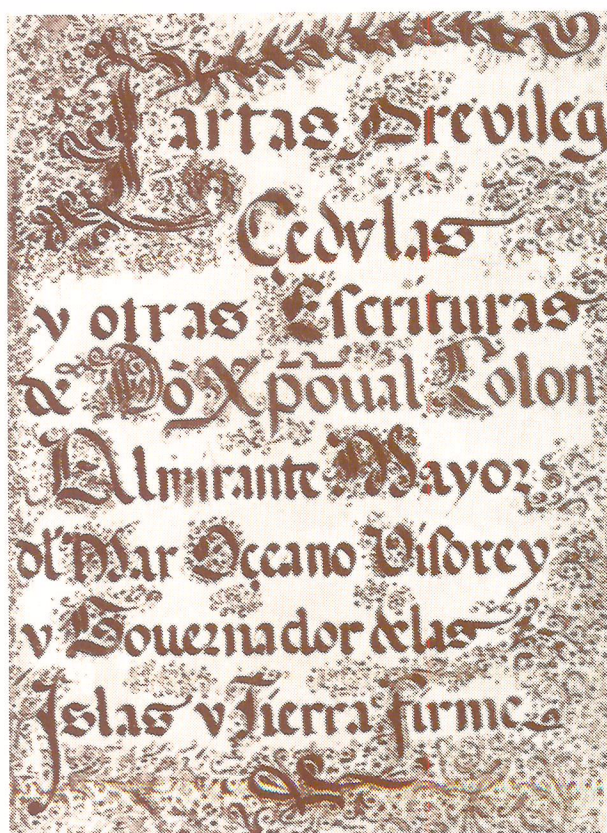 Cartas Previleg
Cedulas
y otras Escrituras
de Dõ Xp̃oual Colon
Almirante Mayor
dl Mar Occeano Visorey
y Gouernador de las
Islas y Tierra firme